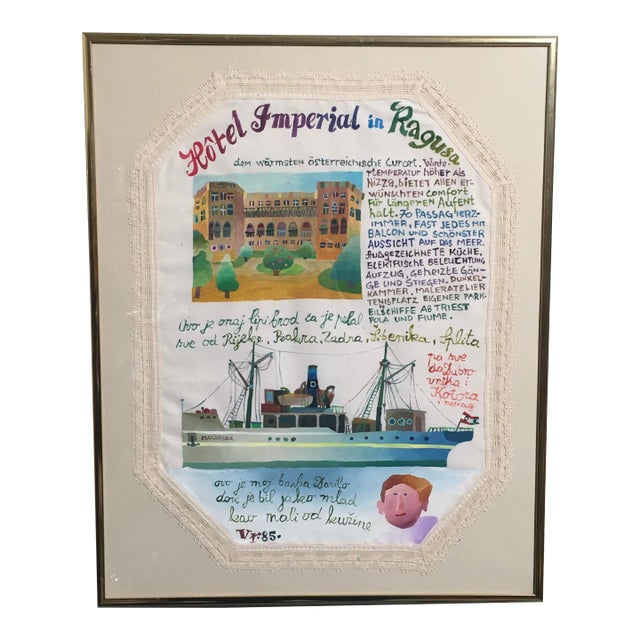 Hôtel Imperial in Ragusa
dem wärmsten österreichische Curort. Winter-
TEMPERATUR HÖHER ALS
NIZZA, BIETET ALLEN ER-
WÜNSCHTEN COMFORT
FÜR LÄNGEREN AUFENT
HALT. 70 PASSAGIERZ-
IMMER, FAST JEDES MIT
BALCON UND SCHÖNSTER
AUSSICHT AUF DAS MEER.
AUSGEZEICHNETE KÜCHE,
ELEKTRISCHE BELEUCHTUNG
AUFZUG, GEHEIZTE GÄN-
GE UND STIEGEN. DUNKEL-
KAMMER, MALERATELIER
TENISPLATZ EIGENER PARK-
EILSCHIFFE AB TRIEST
POLA UND FIUME.
Ovo je onaj lipi brod ča je pelal
sve od Rijeke, Bakra, Zadra, Šibenika, Splita
pa sve
do Dubro
vnika i
Kotora
i natrag
D
MAKARSKA
ovo je moj barba Danilo
dok je bil jako mlad
kao mali od kužine
Vr. 85.